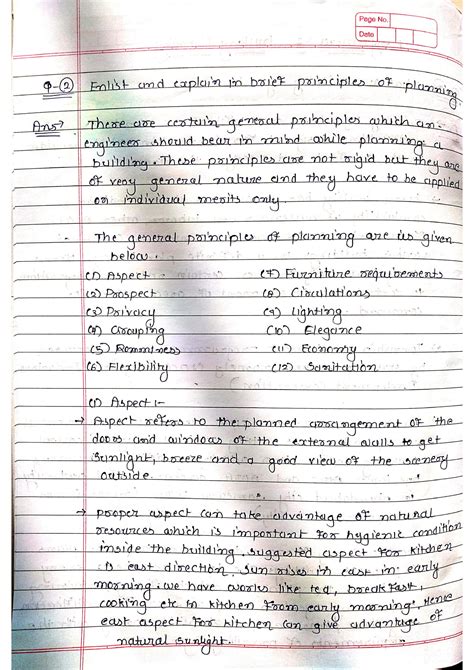 Page No.
Date
Q-② Enlist and explain in brief principles of planning
Ans→ There are certain general principles which an
engineer should bear in mind while planning a
building. These principles are not rigid but they are
of very general nature and they have to be applied
on individual merits only.
The general principles of planning are as given
below.
(1) Aspect (7) Furniture requirements
(2) Prospect (8) Circulations
(3) Privacy (9) Lighting
(4) Grouping (10) Elegance
(5) Romminess (11) Economy
(6) Flexibility (12) Sanitation
(1) Aspect :-
→ Aspect refers to the planned arrangement of the
doors and windows of the external walls to get
sunlight, breeze and a good view of the scenery
outside.
→ proper aspect can take advantage of natural
resources which is important for hygienic condition
inside the building, suggested aspect for kitchen
is east direction, sun rises in east in early
morning. we have works like tea, break fast,
cooking etc in kitchen from early morning, Hence
east aspect for kitchen can give advantage of
natural sunlight.